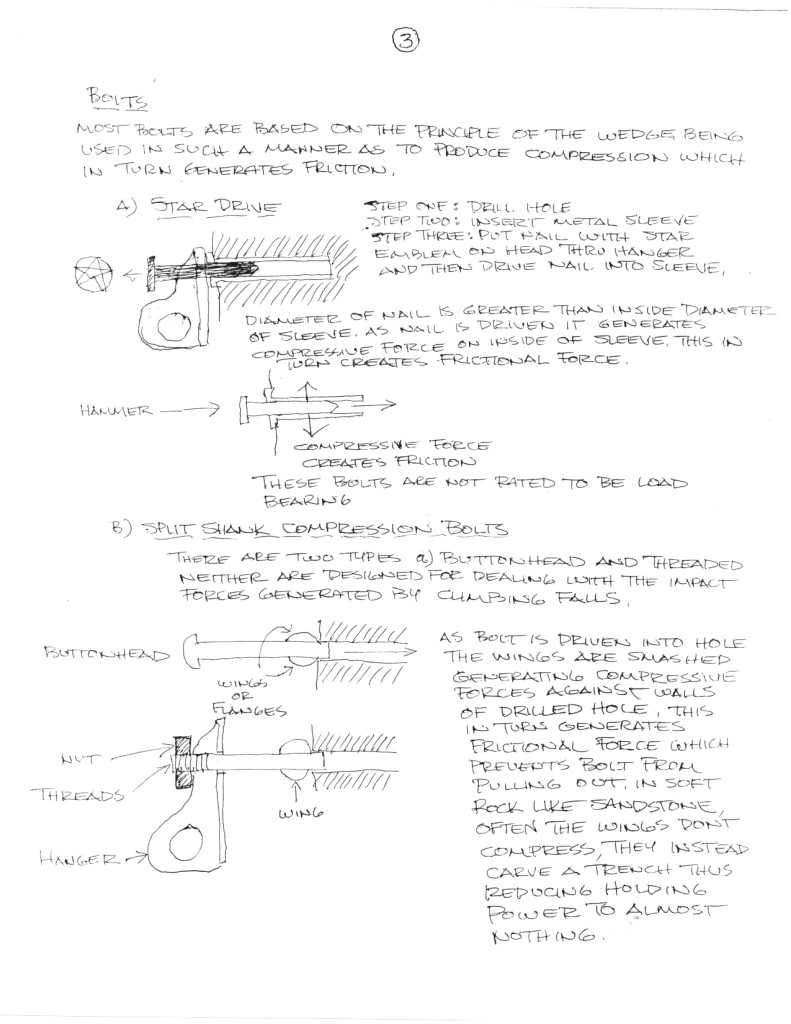 3
BOLTS
MOST BOLTS ARE BASED ON THE PRINCIPLE OF THE WEDGE BEING
USED IN SUCH A MANNER AS TO PRODUCE COMPRESSION WHICH
IN TURN GENERATES FRICTION.
A) STAR DRIVE
STEP ONE: DRILL HOLE
STEP TWO: INSERT METAL SLEEVE
STEP THREE: PUT NAIL WITH STAR
EMBLEM ON HEAD THRU HANGER
AND THEN DRIVE NAIL INTO SLEEVE.
DIAMETER OF NAIL IS GREATER THAN INSIDE DIAMETER
OF SLEEVE. AS NAIL IS DRIVEN IT GENERATES
COMPRESSIVE FORCE ON INSIDE OF SLEEVE, THIS IN
TURN CREATES FRICTIONAL FORCE.
HAMMER
COMPRESSIVE FORCE
CREATES FRICTION
THESE BOLTS ARE NOT RATED TO BE LOAD
BEARING
B) SPLIT SHANK COMPRESSION BOLTS
THERE ARE TWO TYPES a) BUTTONHEAD AND THREADED
NEITHER ARE DESIGNED FOR DEALING WITH THE IMPACT
FORCES GENERATED BY CLIMBING FALLS.
BUTTONHEAD
WINGS
OR
FLANGES
NUT
THREADS
WING
HANGER
AS BOLT IS DRIVEN INTO HOLE
THE WINGS ARE SMASHED
GENERATING COMPRESSIVE
FORCES AGAINST WALLS
OF DRILLED HOLE, THIS
IN TURN GENERATES
FRICTIONAL FORCE WHICH
PREVENTS BOLT FROM
PULLING OUT. IN SOFT
ROCK LIKE SANDSTONE,
OFTEN THE WINGS DON'T
COMPRESS, THEY INSTEAD
CARVE A TRENCH THUS
REDUCING HOLDING
POWER TO ALMOST
NOTHING.